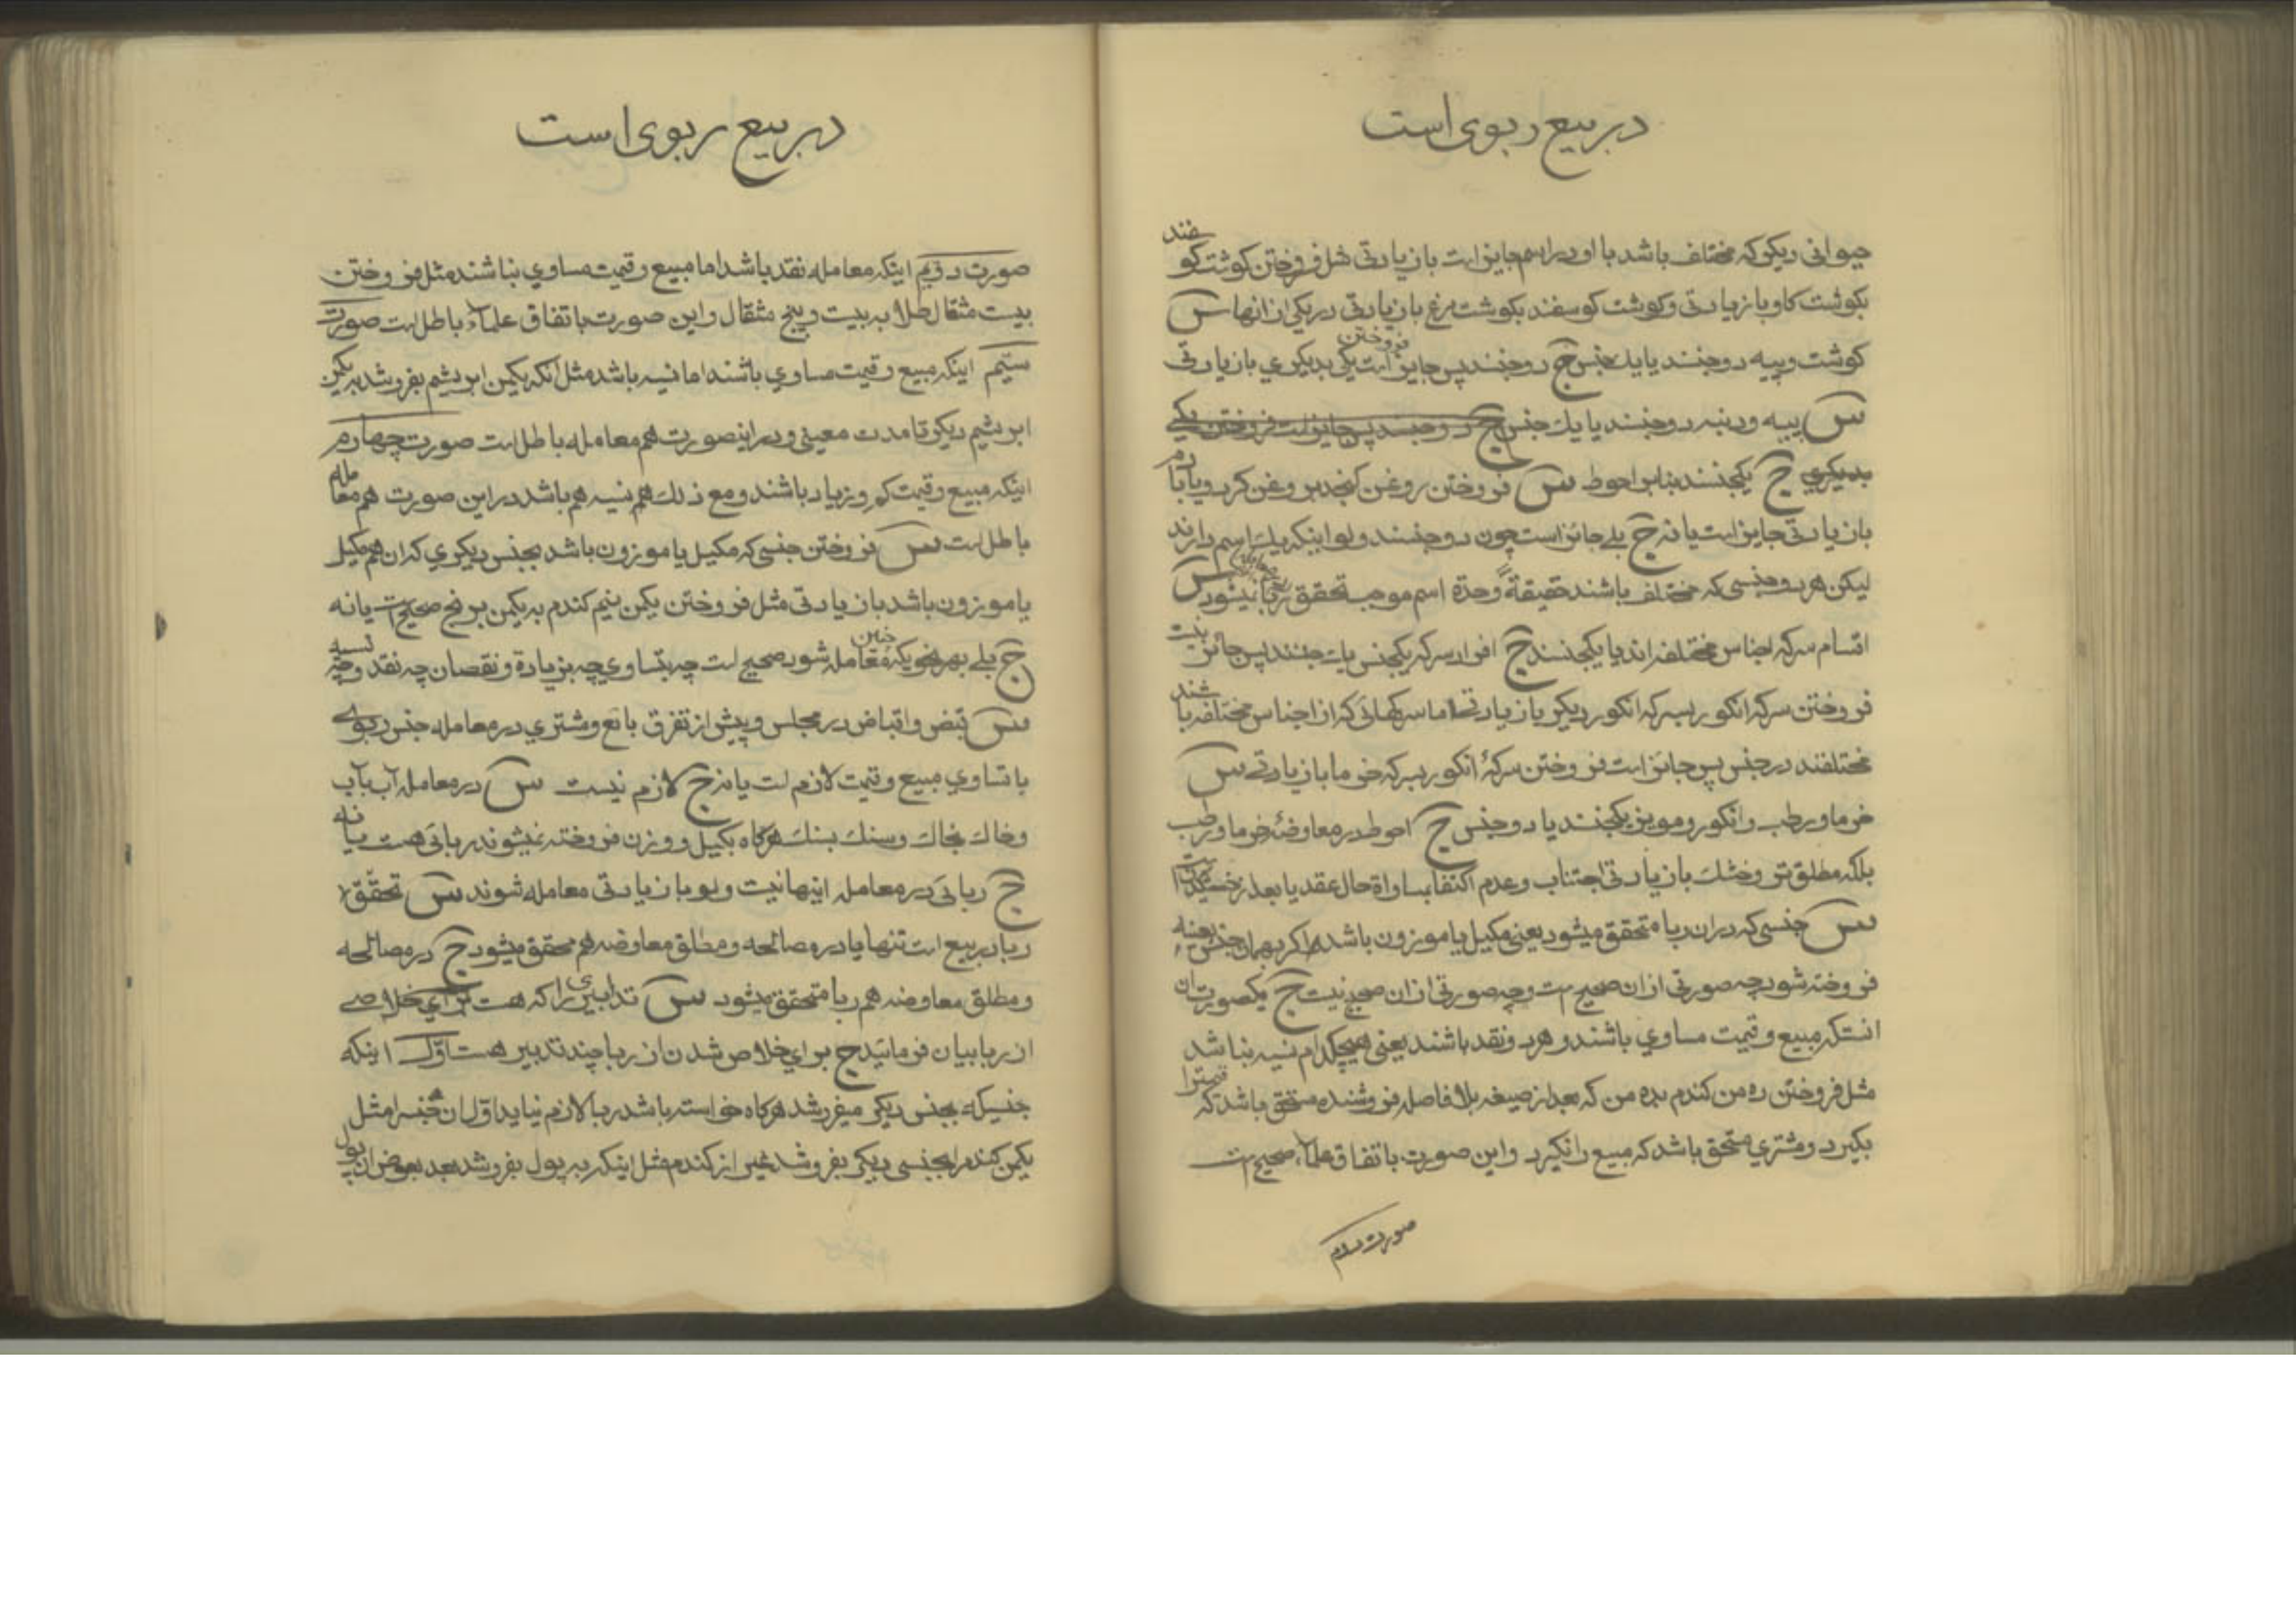 در بیع ربوی است
حیوانی دیکر که مختلف باشد با او در اسم جایز است با زیادتی مثل فروختن کوشت کوسفند
بکوشت کاو با زیادتی و کوشت کوسفند بکوشت مرغ با زیادتی در یکی از انها س
کوشت و پیه دو جنسند یا یك جنس ج دو جنسند پس جایز است فروختن یکی بدیکری با زیادتی
س پیه و دنبه دو جنسند یا یك جنس ج دو جنسند پس جایز است فروختن یکے
بدیکري ج یکجنسند بنابر احوط س فروختن روغن کنجد بروغن کردو یا بادام
با زیادتی جایز است یا نه ج بلے جائز است چون دو جنسند ولو اینکه یك اسم دارند
لیکن هر دو جنسی که مختلف باشند حقیقة وحدة اسم موجب تحقق ربا نمیشود س
اقسام سرکه اجناس مختلفه اند یا یکجنسند ج افراد سرکه یکجنس پس جائز نیست
فروختن سرکه انکور بسرکه انکور دیکر با زیادتی اما سرکهائی که از اجناس مختلفه باشند
مختلفند در جنس پس جائز است فروختن سرکهٔ انکور بسرکه خرما با زیادتے س
خرما و رطب و انکور و مویز یکجنسند یا دو جنس ج احوط در معاوضهٔ خرما و رطب
بلکه مطلق تر و خشك با زیادتی اجتناب و عدم اکتفا بمساواة حال عقد یا بعد از خشکیدن است
س جنسی که در ان ربا متحقق میشود یعنی مکیل یا موزون باشد اکر بهمان جنس بعینه
فروخته شود چه صورتی از ان صحیح ست و چه صورتی از ان صحیح نیست ج یکصورت ان
انستکه مبیع و قیمت مساوي باشند و هر دو نقد باشند یعنی هیچکدام نسیه نباشد
مثل فروختن ده من کندم بده من که بعد از صیغه بلا فاصله فروشنده مستحق باشد که قیمترا
بکیرد و مشتري مستحق باشد که مبیع را نکیرد و این صورت باتفاق علماء صحیح ست
صورت دویم
در بیع ربوی است
صورت دویم اینکه معامله نقد باشد اما مبیع و قیمت مساوي نباشند مثل فروختن
بیست مثقال طلا به بیست و پنج مثقال و این صورت باتفاق علماء باطل است صورت
سیّم اینکه مبیع و قیمت مساوي باشند اما نسیه باشد مثل انکه یکمن ابریشم بفروشد به یکمن
ابریشم دیکر تا مدت معینی و در اینصورت هم معامله باطل است صورت چهارم
اینکه مبیع و قیمت کم و زیاد باشند و مع ذلك هم نسیه هم باشد در این صورت هم معامله
باطل است س فروختن جنسی که مکیل یا موزون باشد بجنس دیکري که ان هم مکیل
یا موزون باشد با زیادتی مثل فروختن یکمن نیم کندم به یکمن برنج صحیح ست یا نه
ج بلے بهر نحویکه چنین معامله شود صحیح است چه بتساوي چه بزیادة و نقصان چه نقد و چه نسیه
س قبض و اقباض در مجلس و پیش از تفرق بائع و مشتري در معامله جنس ربوے
با تساوي مبیع و قیمت لازم است یا نه ج لازم نیست س در معامله آب بآب
و خاك بخاك و سنك بسنك هرکاه بکیل و وزن فروخته نمیشوند ربائی هست یا نه
ج ربائی در معامله اینها نیست ولو با زیادتی معامله شوند س تحقّق
ربا در بیع است تنها یا در مصالحه و مطلق معاوضه هم محقق میشود ج در مصالحه
و مطلق معاوضه هم ربا متحقق میشود س تدابیری را که هست برای خلاصے
از ربا بیان فرمائید ج براي خلاص شدن از ربا چند تدبیر هست اوّل اینکه
جنسیکه بجنس دیکر میفروشد هرکاه خواسته باشد ربا لازم نیاید اوّل ان جنسرا مثل
یکمن کندم را بجنسی دیکر بفروشد غیر از کندم مثل اینکه به پول بفروشد بعد بعوض ان پول